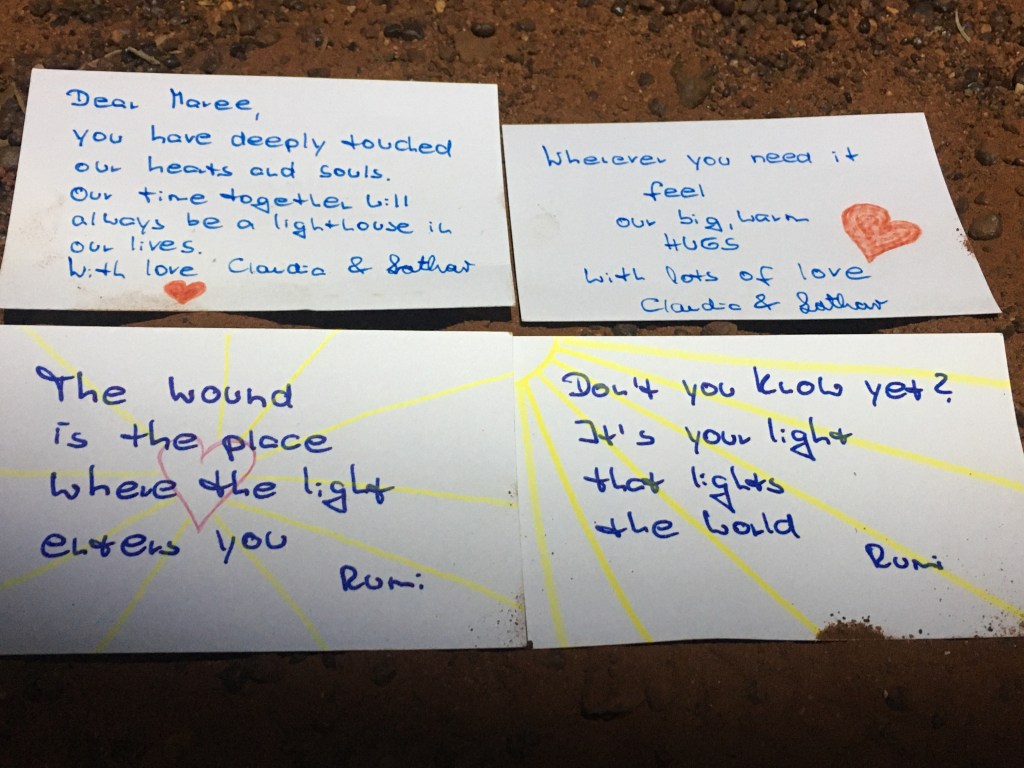 Dear Maree,
you have deeply touched
our hearts and souls.
Our time together will
always be a lighthouse in
our lives.
With love Claudia &
Wherever you need it
feel
our big, warm
HUGS
with lots of love
Claudia &
The wound
is the place
where the light
enters you
Rumi
Don't you know yet?
It's your light
that lights
the world
Rumi